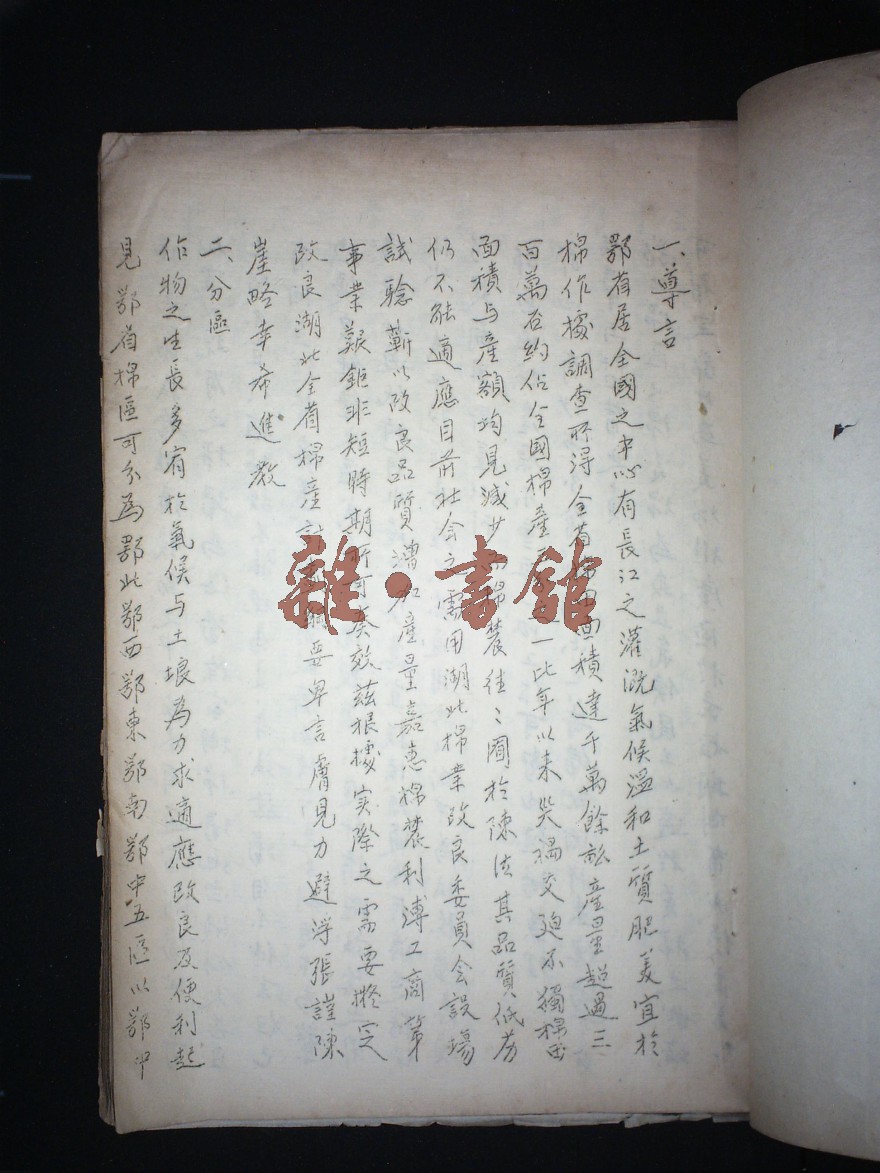 一、導言
鄂省居全國之中心有長江之灌溉氣候溫和土質肥美宜於
棉作據調查所得全省棉田面積達千萬餘畝産量超過三
百萬石約佔全國棉產 一比年以來災禍交迫不獨棉田
面積与產額均見減少 棉農往〻囿於陳法其品質低劣
仍不能適應目前社會之需用湖北棉業改良委員會設場
試驗蘄以改良品質增加產量嘉惠棉農利溥工商第
事業艱鉅非短時期所可奏效茲根據实際之需要擬定
改良湖北全省棉產計 要卑言膚見力避浮張謹陳
崖略幸希進教
二、分區
作物之生長多宥於氣候与土壤為力求適應改良及便利起
見鄂省棉區可分為鄂北鄂西鄂東鄂南鄂中五區以鄂中
雜·書館